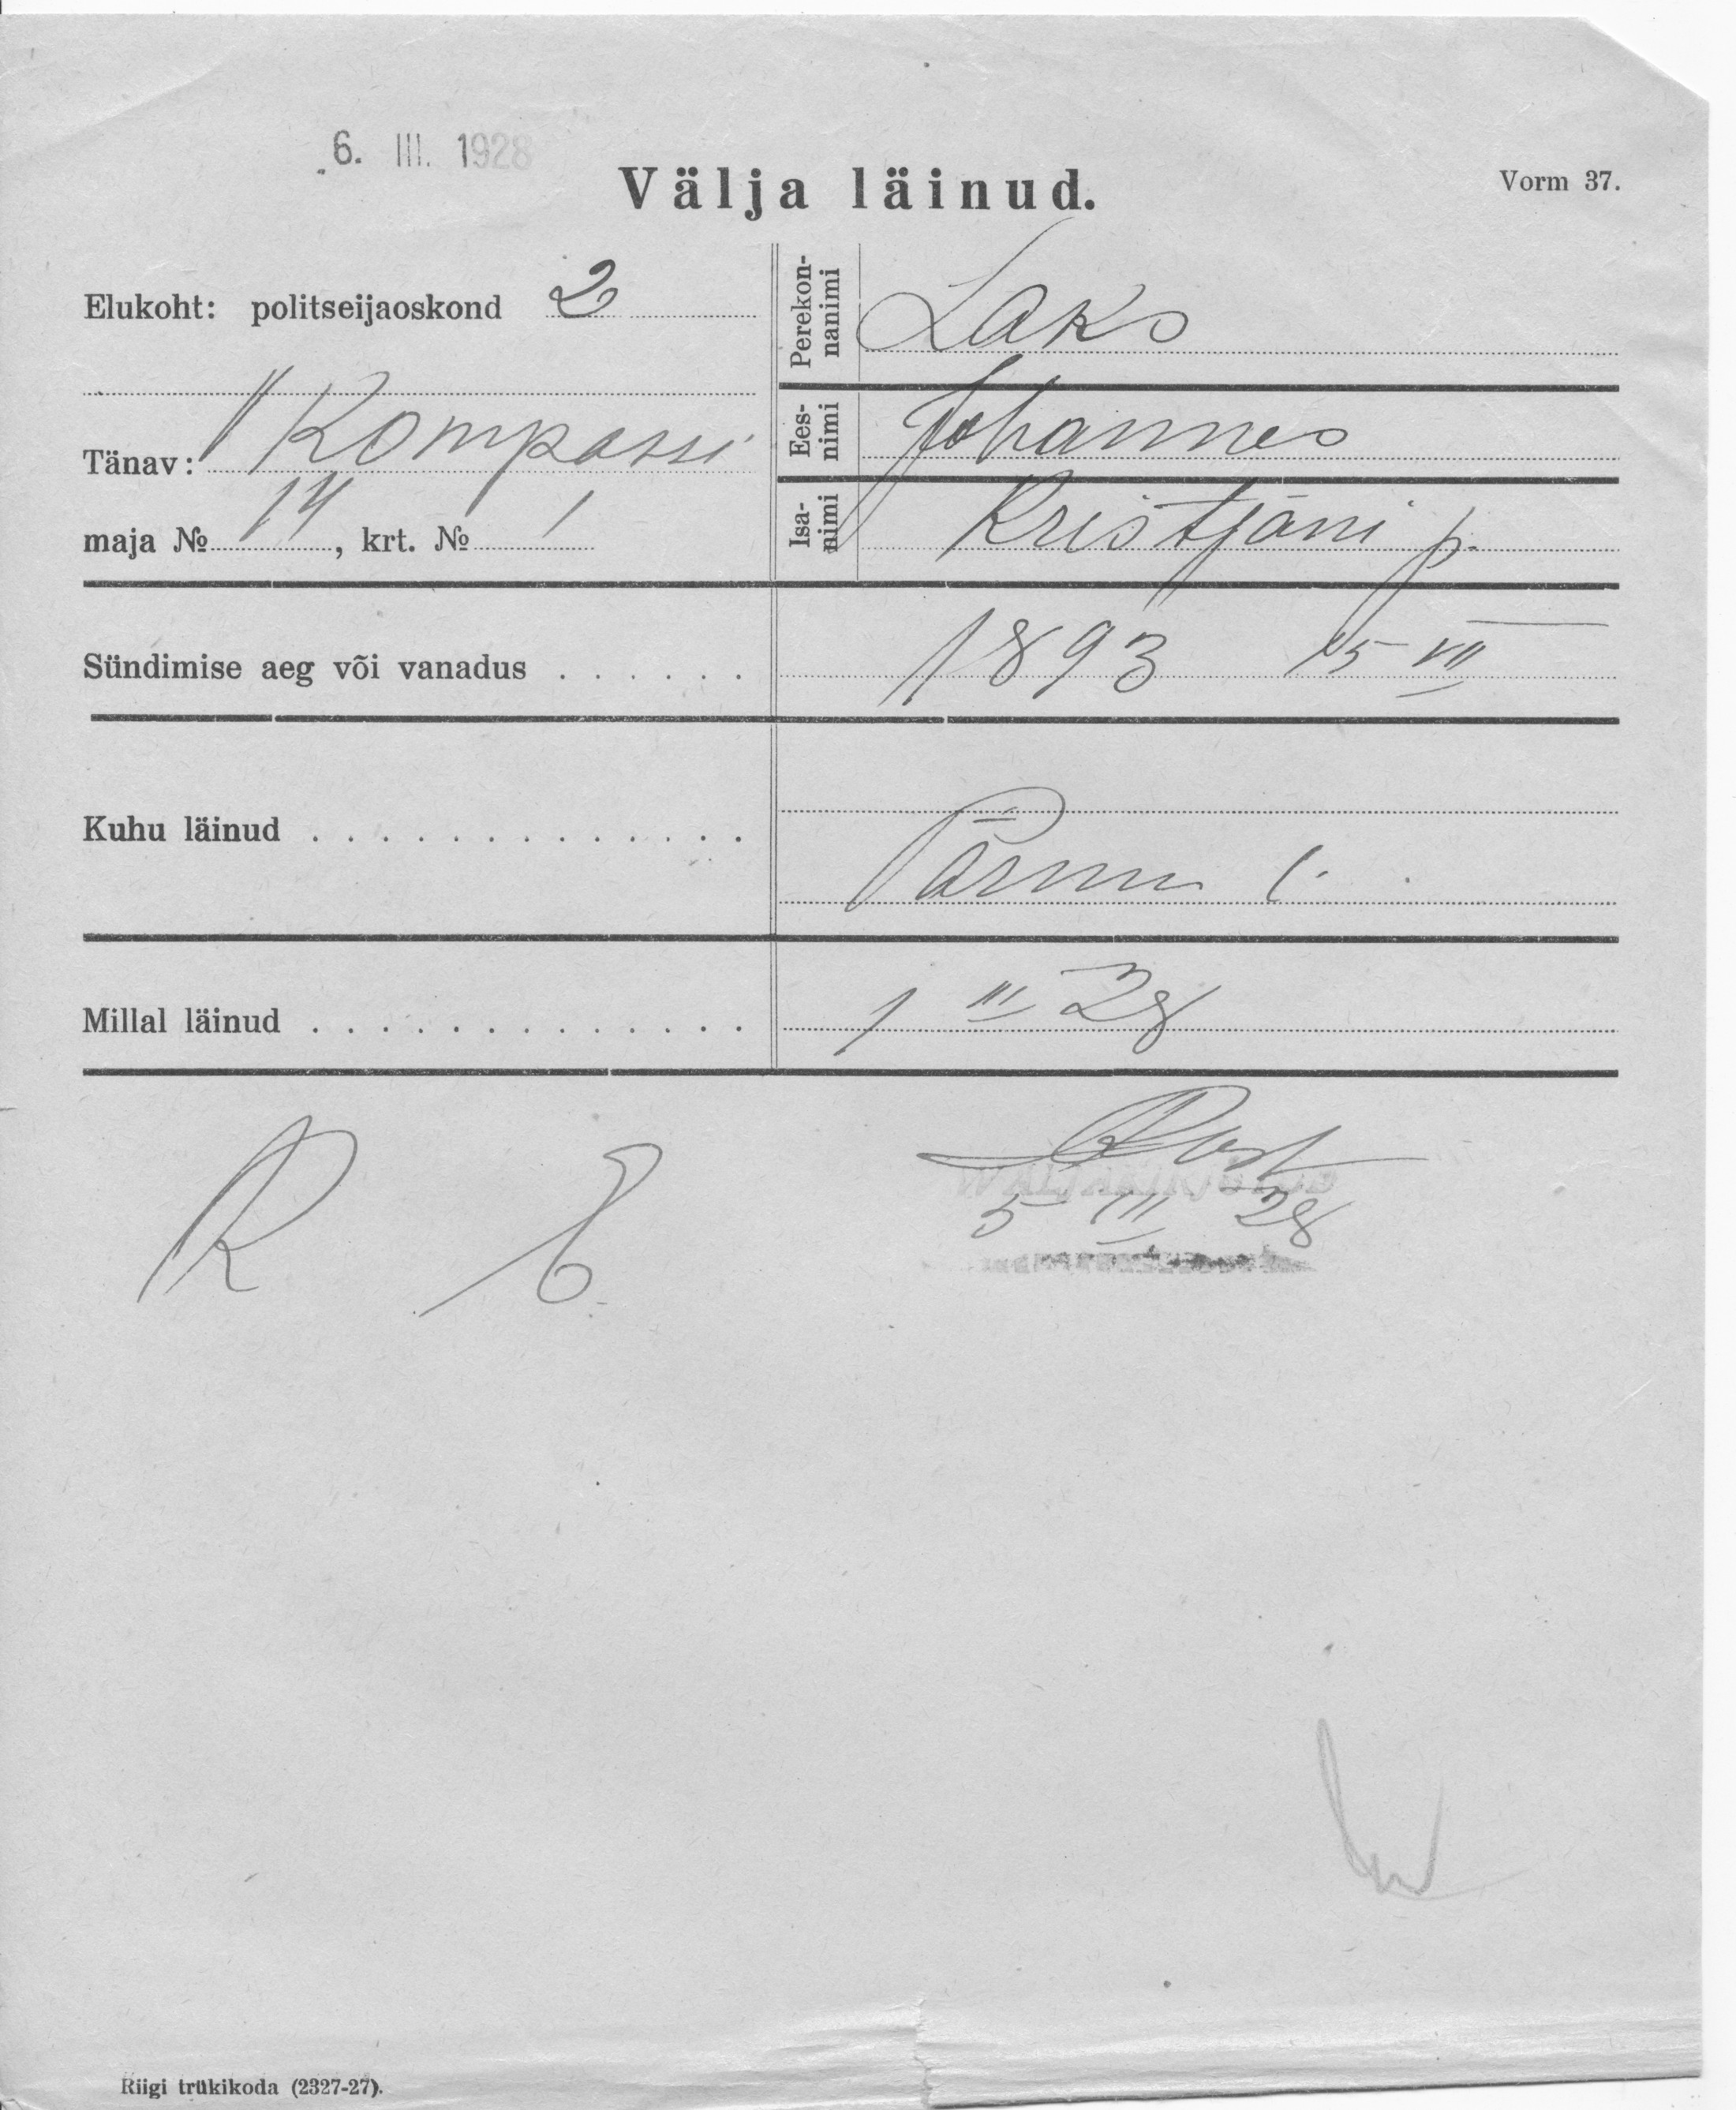 6. III. 1928
Välja läinud.
Vorm 37.
Elukoht: politseijaoskond 2
Tänav: Kompassi
maja № 14, krt. № 1
Perekon-
nanimi
Laks
Ees-
nimi
Johannes
Isa-
nimi
Kristjäni p.
Sündimise aeg või vanadus . . . . . . 1893 15 VII
Kuhu läinud . . . . . . . . . . . . . Pärnu l.
Millal läinud . . . . . . . . . . . . . 1 III 28
R E
5 III 28
Riigi trükikoda (2327-27).